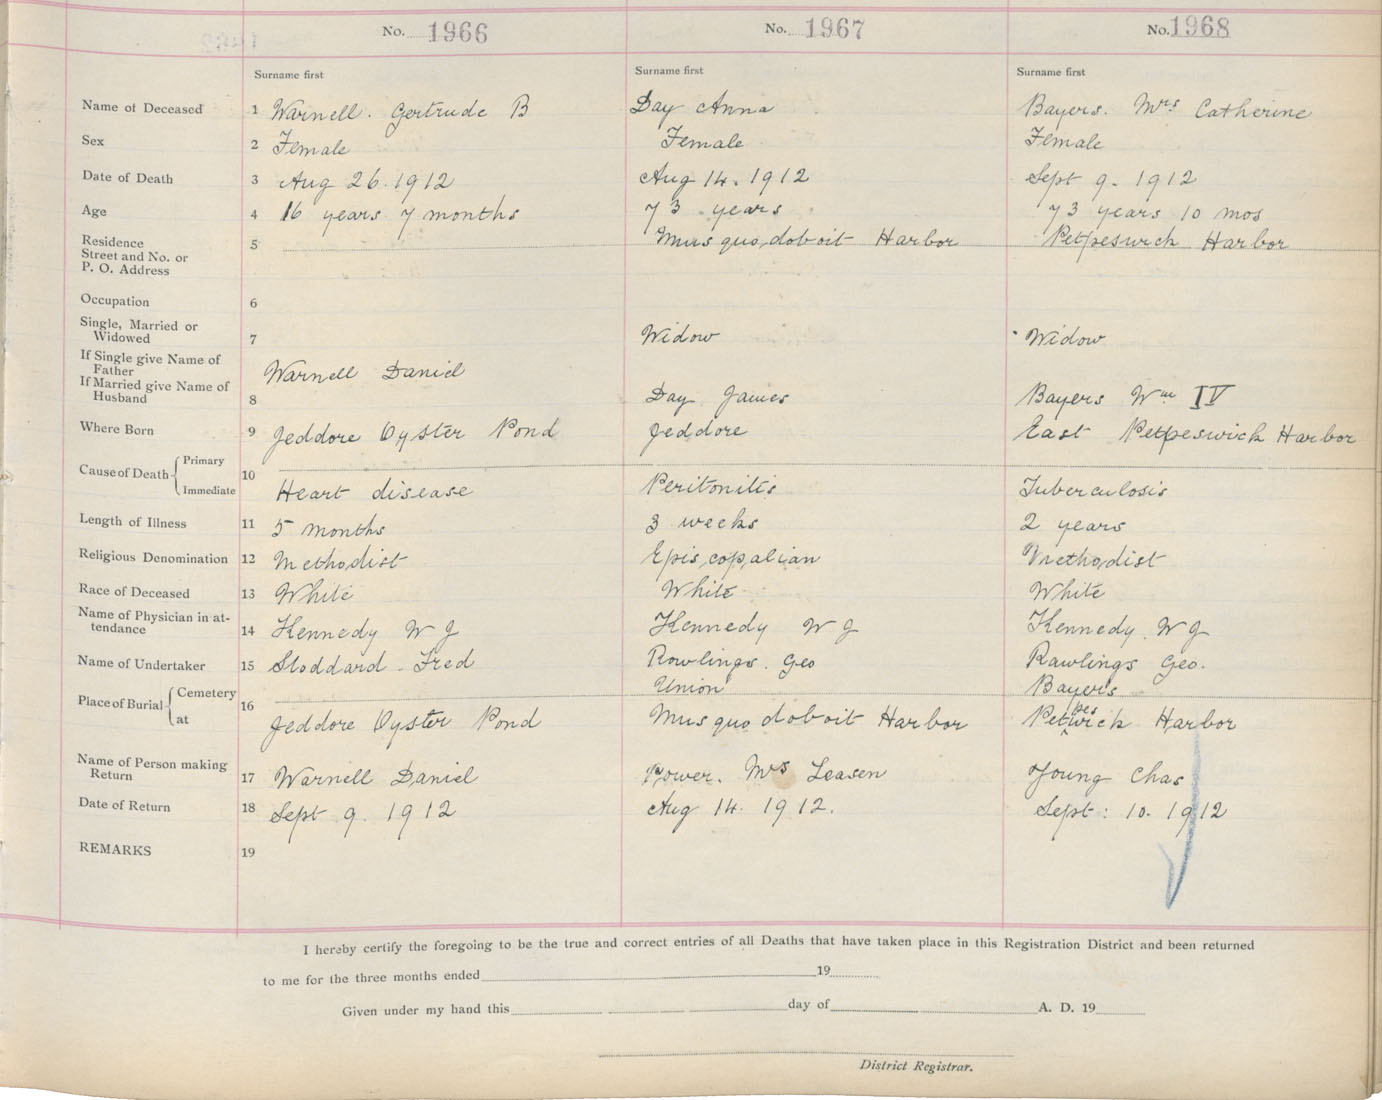 No. 1966 No. 1967 No. 1968
Surname first Surname first Surname first
Name of Deceased 1 Warnell. Gertrude B Day Anna Bayers. Mrs Catherine
Sex 2 Female Female Female
Date of Death 3 Aug 26. 1912 Aug 14. 1912 Sept 9. 1912
Age 4 16 years 7 months 73 years 73 years 10 mos
Residence 5 Musquodoboit Harbor Petpeswick Harbor
Street and No. or
P. O. Address
Occupation 6
Single, Married or
Widowed 7 Widow Widow
If Single give Name of
Father Warnell Daniel
If Married give Name of
Husband 8 Day James Bayers Wm IV
Where Born 9 Jeddore Oyster Pond Jeddore East Petpeswick Harbor
Cause of Death Primary 10
Immediate Heart disease Peritonitis Tuberculosis
Length of Illness 11 5 months 3 weeks 2 years
Religious Denomination 12 Methodist Episcopalian Methodist
Race of Deceased 13 White White White
Name of Physician in at-
tendance 14 Kennedy W J Kennedy W J Kennedy. W J
Name of Undertaker 15 Stoddard - Fred Rowlings. Geo Rawlings Geo.
Place of Burial Cemetery 16 Union Bayers
at Jeddore Oyster Pond Musquodoboit Harbor Petpeswick Harbor
Name of Person making
Return 17 Warnell Daniel Power. Mrs Leasen Young Chas
Date of Return 18 Sept 9. 1912 Aug 14. 1912. Sept: 10. 1912
REMARKS 19
I hereby certify the foregoing to be the true and correct entries of all Deaths that have taken place in this Registration District and been returned
to me for the three months ended 19
Given under my hand this day of A. D. 19
District Registrar.